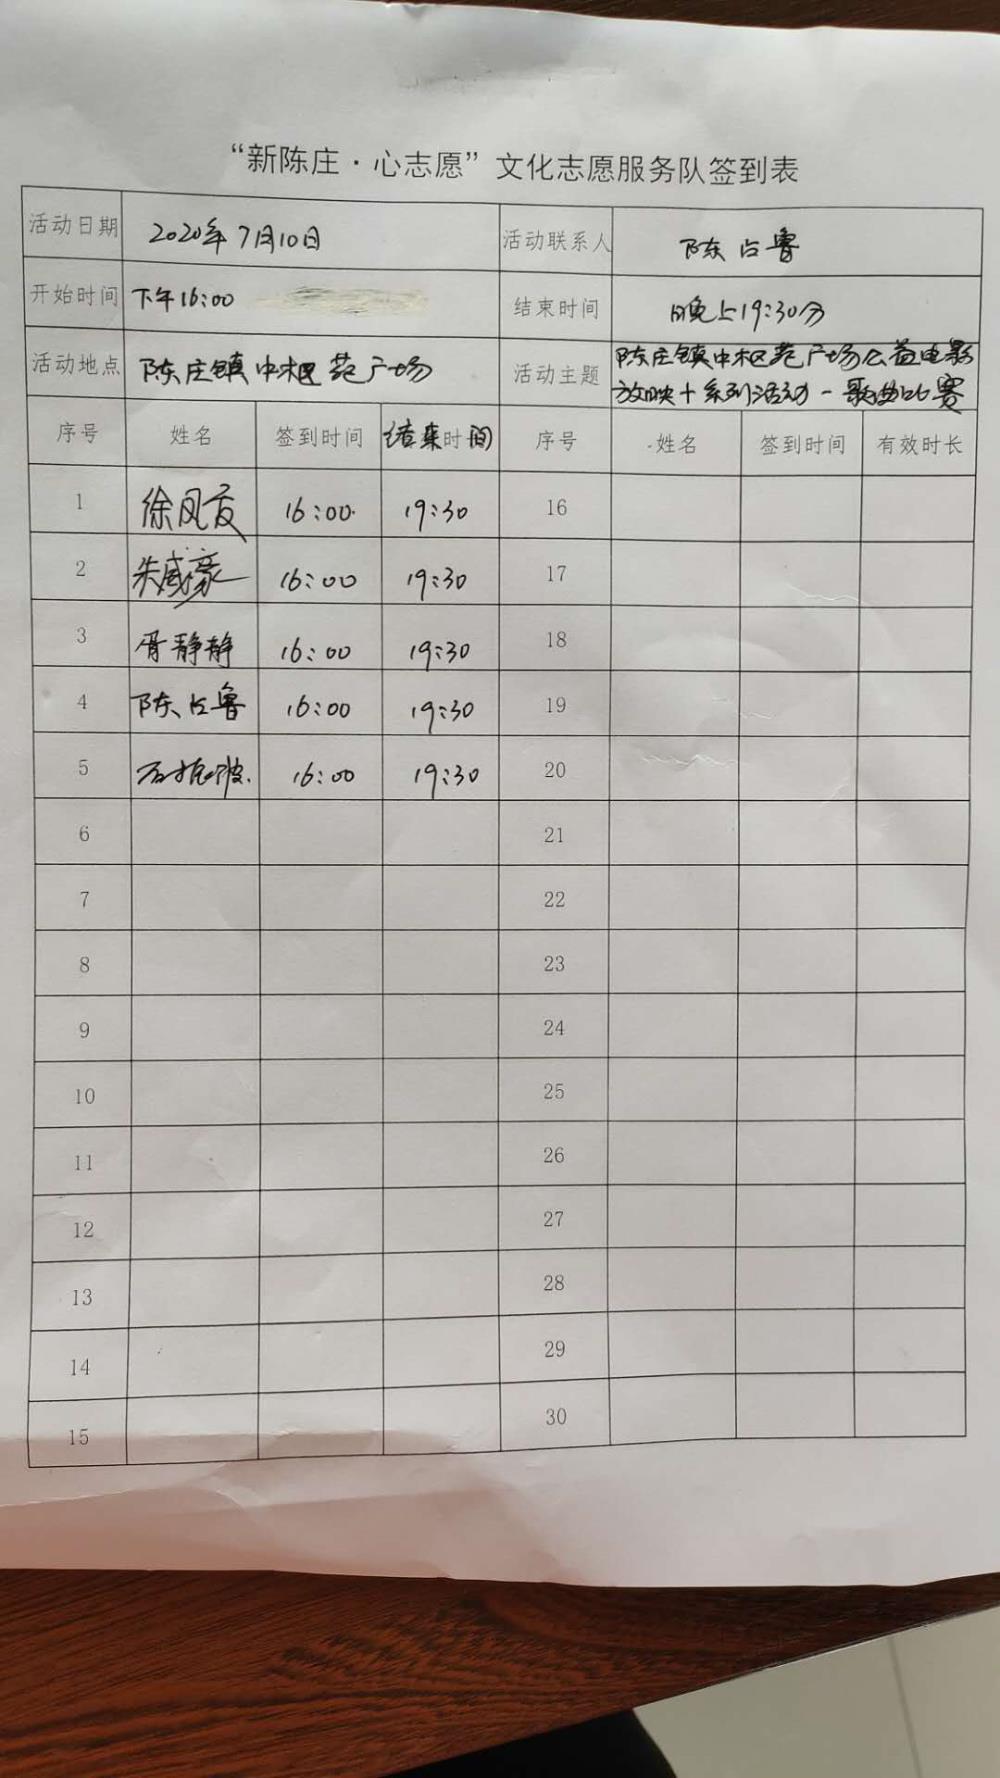 “新陈庄·心志愿”文化志愿服务队签到表
活动日期 2020年7月10日 活动联系人 陈占鲁
开始时间 下午16:00 结束时间 晚上19:30分
活动地点 陈庄镇中枢苑广场 活动主题 陈庄镇中枢苑广场公益电影
放映+系列活动-歌曲比赛
序号 姓名 签到时间 结束时间 序号 姓名 签到时间 有效时长
1 16:00 19:30 16
2 朱威豪 16:00 19:30 17
3 胥静静 16:00 19:30 18
4 陈占鲁 16:00 19:30 19
5 16:00 19:30 20
6 21
7 22
8 23
9 24
10 25
11 26
12 27
13 28
14 29
15 30